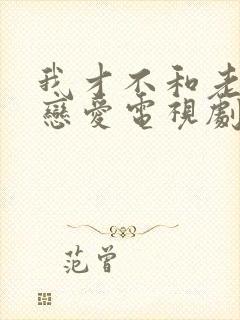 我才不和老
戀愛電視劇
范曾